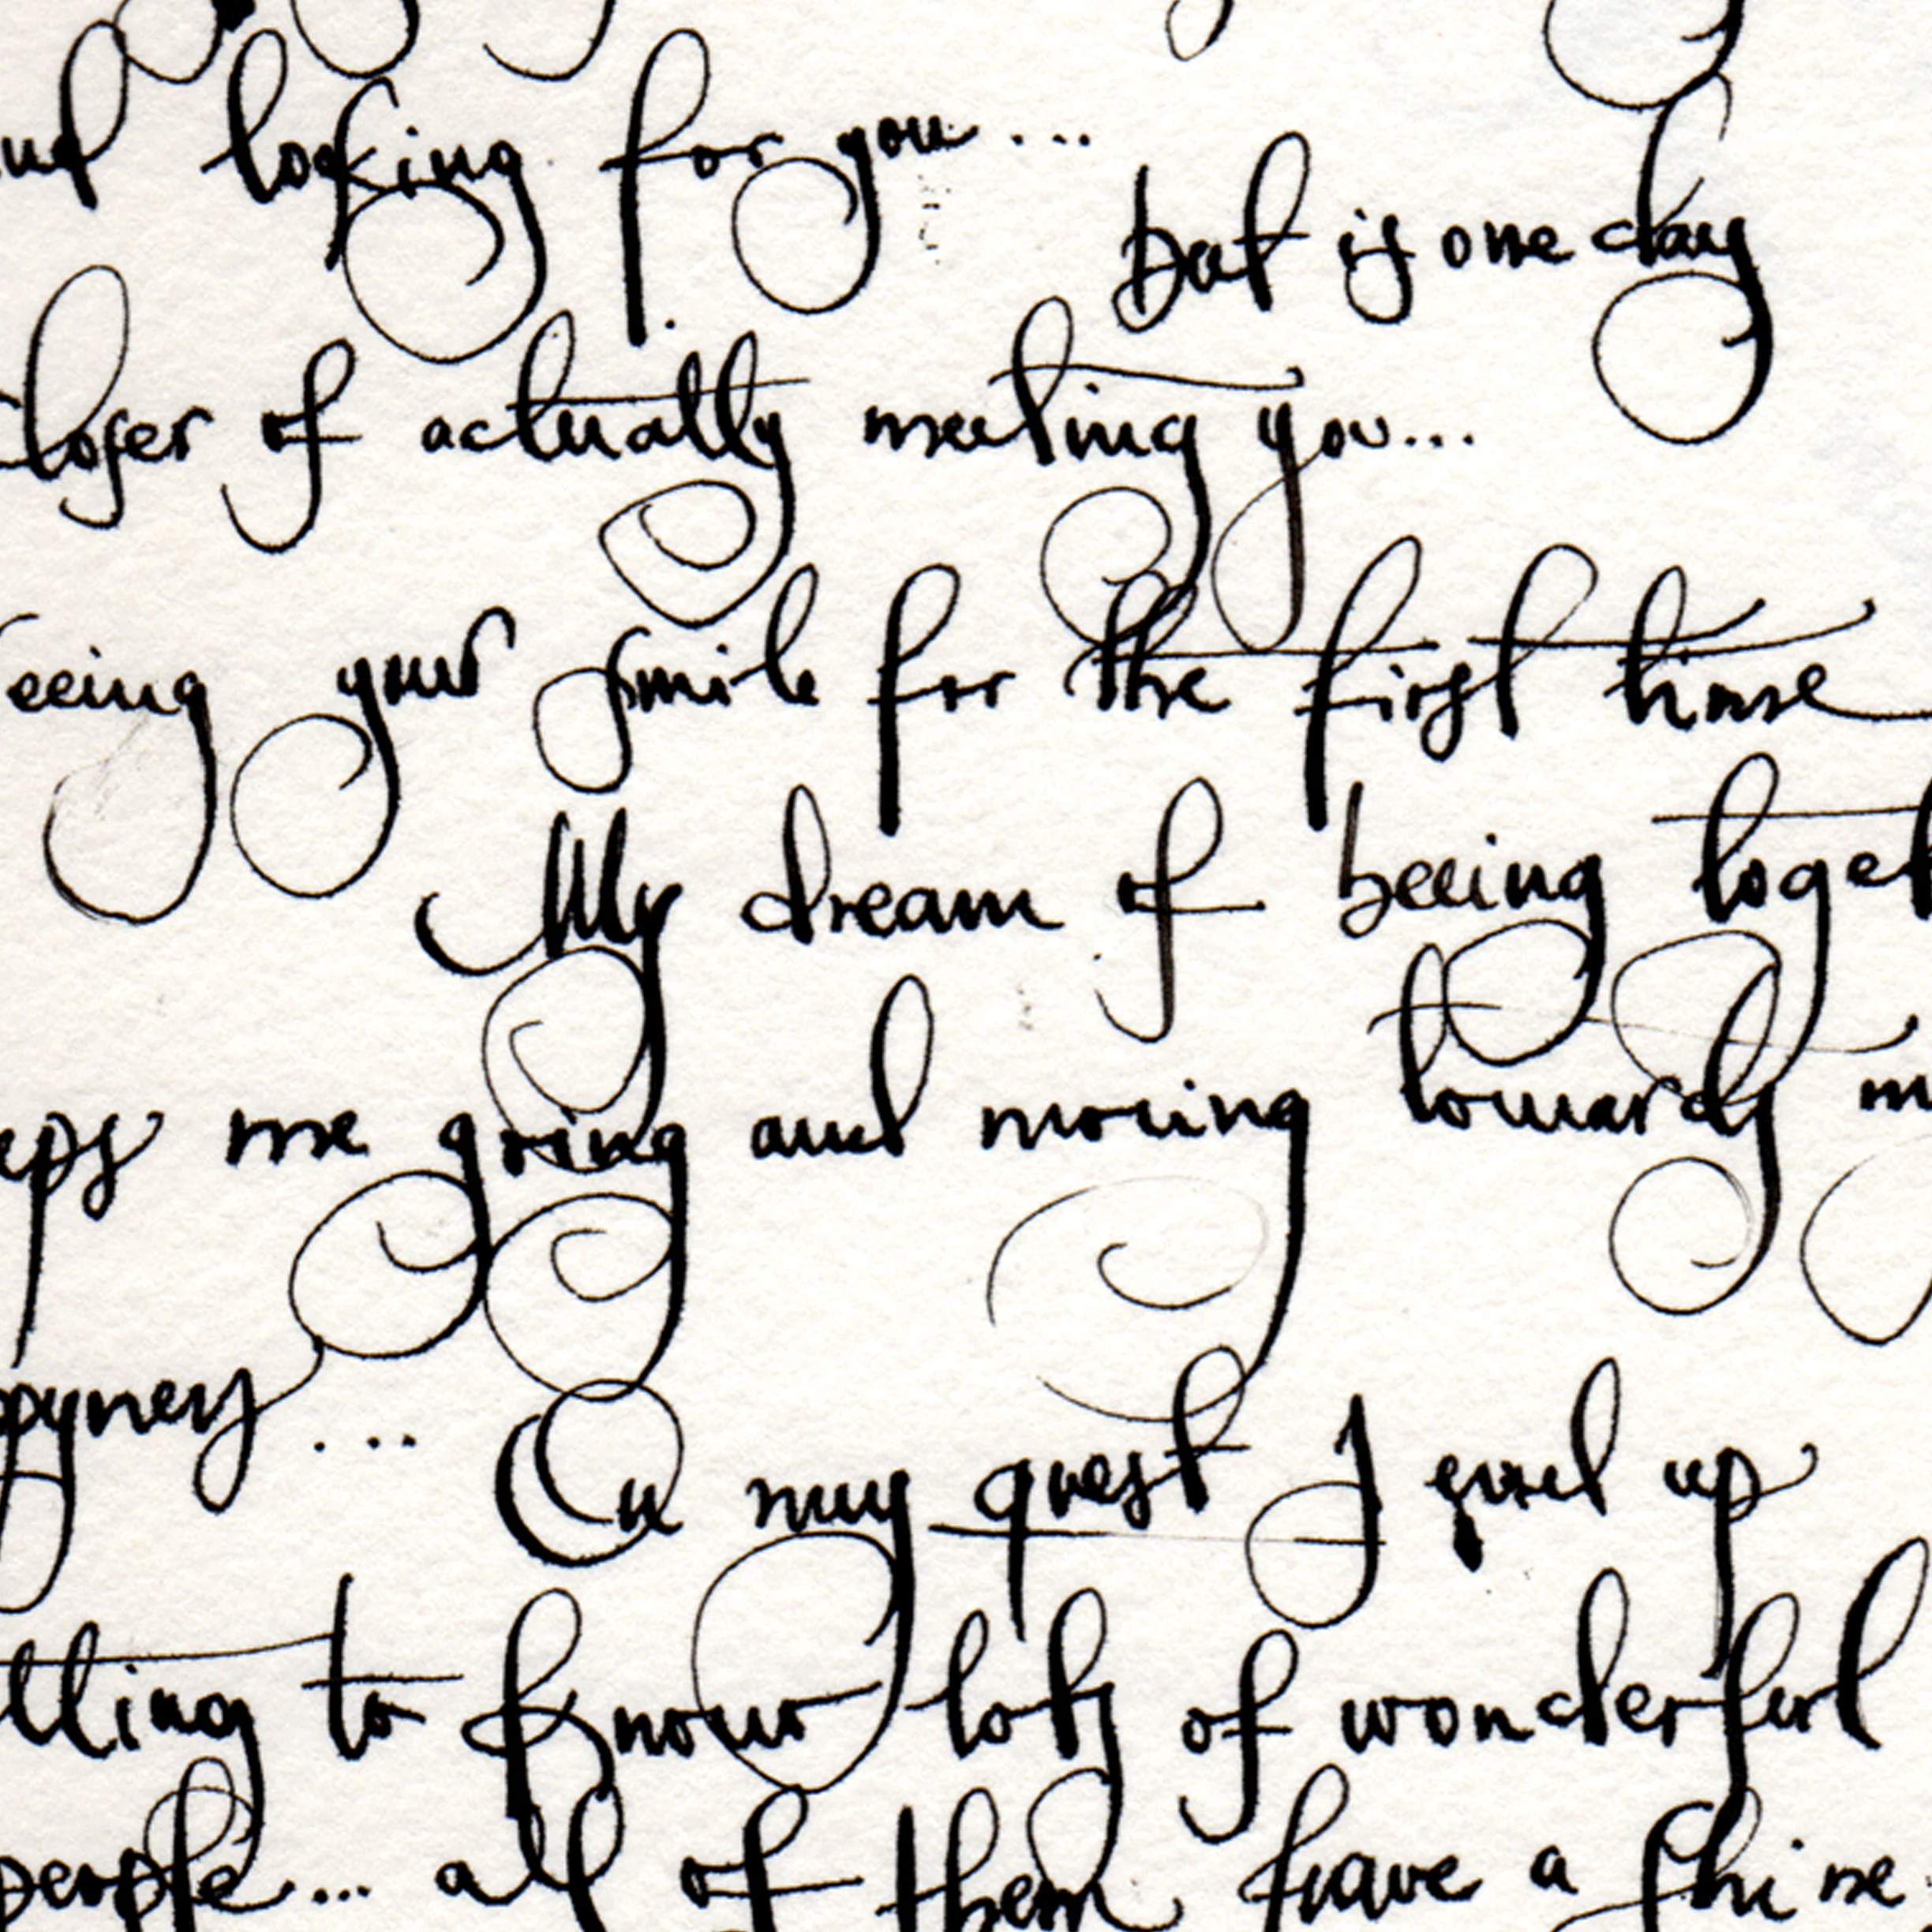 and looking for you...
but is one day
closer of actually meeting you...
seeing your smile for the first time
My dream of beeing toget
eeps me going and moving towards m
ppyness... On my quest I end up
tting to know lots of wonderful
people... all of them have a shine